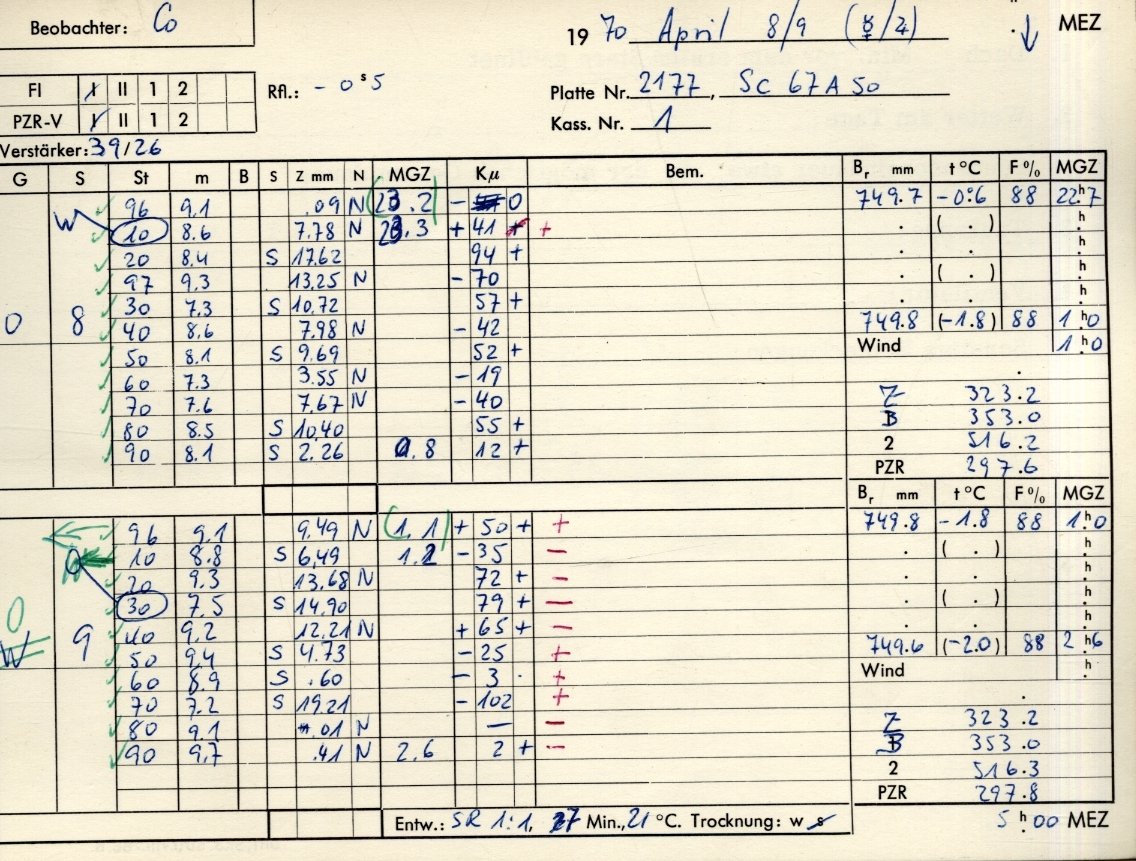 Beobachter: Co
19 70 April 8/9 (☿/♃) ↓ MEZ
FI I II 1 2
Rfl.: - 0ˢ5
Platte Nr. 2177, SC 67A50
PZR-V I II 1 2
Kass. Nr. 1
Verstärker: 39/26
G S St m B S Z mm N MGZ Kμ Bem. Bᵣ mm t °C F % MGZ
96 9.1 .09 N (23.2) - 0 749.7 -0.6 88 22ʰ7
W 10 8.6 7.78 N 23.3 + 41 + + ( . ) ʰ
20 8.4 S 17.62 94 + ʰ
97 9.3 13,25 N - 70 ( . ) ʰ
0 8 30 7.3 S 10,72 57 + ʰ
40 8.6 7.98 N - 42 749.8 (-1.8) 88 1ʰ0
50 8.1 S 9.69 52 + Wind 1ʰ0
60 7.3 3.55 N - 19
70 7.6 7.67 N - 40 Z 323.2
80 8.5 S 10,40 55 + B 353.0
90 8.1 S 2.26 0.8 12 + 2 516.2
PZR 297.6
Bᵣ mm t °C F % MGZ
96 9.1 9,49 N (1.1) + 50 + + 749.8 -1.8 88 1ʰ0
10 8.8 S 6,49 1.2 - 35 - ( . ) ʰ
20 9.3 13.68 N 72 + - ʰ
0 30 7.5 S 14.90 79 + - ( . ) ʰ
W 9 40 9.2 12.21 N + 65 + - ʰ
50 9.4 S 4.73 - 25 + 749.6 (-2.0) 88 2ʰ6
60 8.9 S .60 - 3 . + Wind ʰ
70 7.2 S 19.21 - 102 +
80 9.1 .01 N — - Z 323.2
90 9.7 .41 N 2.6 2 + - B 353.0
2 516.3
PZR 297.8
Entw.: SR 1:1, 7 Min., 21 °C. Trocknung: w s 5ʰ00 MEZ